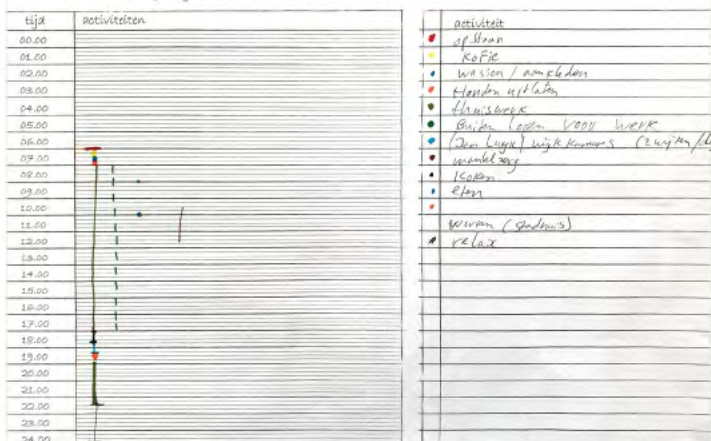 tijd activiteiten
00.00
01.00
02.00
03.00
04.00
05.00
06.00
07.00
08.00
09.00
10.00
11.00
12.00
13.00
14.00
15.00
16.00
17.00
18.00
19.00
20.00
21.00
22.00
23.00
24.00
activiteit
opstaan
koFie
wassen / aankleden
Honden uitlaten
thuiswerk
Buiten lopen voor werk
(Jan Luyk) wijk (2 wijken /
mantelzorg
Koken
eten
(stadhuis)
relax